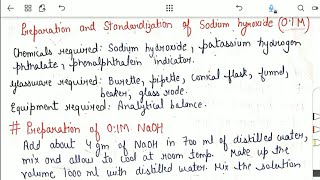 Preparation and Standardization of Sodium hyroxide (0.1M)
Chemicals required: Sodium hydroxide, patassium hydrogen
phthalate, phenolphthalein indicator.
Glassware required: Burette, pipette, conical flask, funnel,
beaker, glass rode.
Equipment required: Analytical balance.
# Preparation of 0.1M NaOH
Add about 4 gm of NaOH in 700 ml of distilled water,
mix and allow to cool at room temp. Make up the
volume 1000 ml with distilled water. Mix the solution